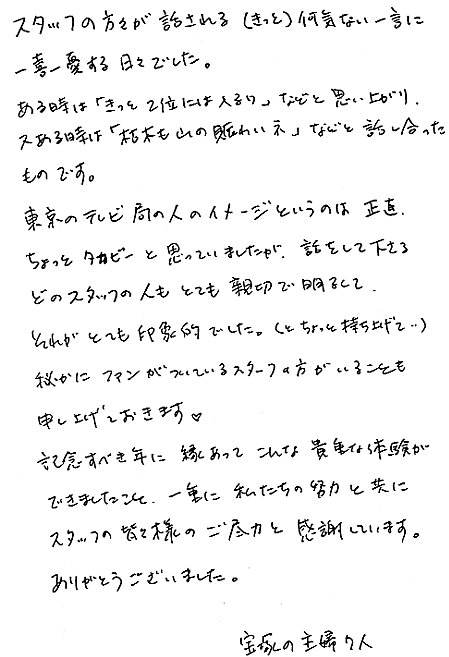 スタッフの方々が話される(きっと)何気ない一言に
一喜一憂する日々でした。
ある時は「きっと2位には入るワ」などと思い上がり、
又ある時は「枯木も山の賑わいネ」などと話し合った
ものです。
東京のテレビ局の人のイメージというのは正直、
ちょっとタカビーと思っていましたが、話をして下さる
どのスタッフの人もとても親切で明るくて、
それがとても印象的でした。(とちょっと持ち上げて‥)
秘かにファンがついているスタッフの方がいることも
申し上げておきます♡
記念すべき年に縁あってこんな貴重な体験が
できましたこと、一重に私たちの努力と共に
スタッフの皆々様のご尽力と感謝しています。
ありがとうございました。
宝塚の主婦7人